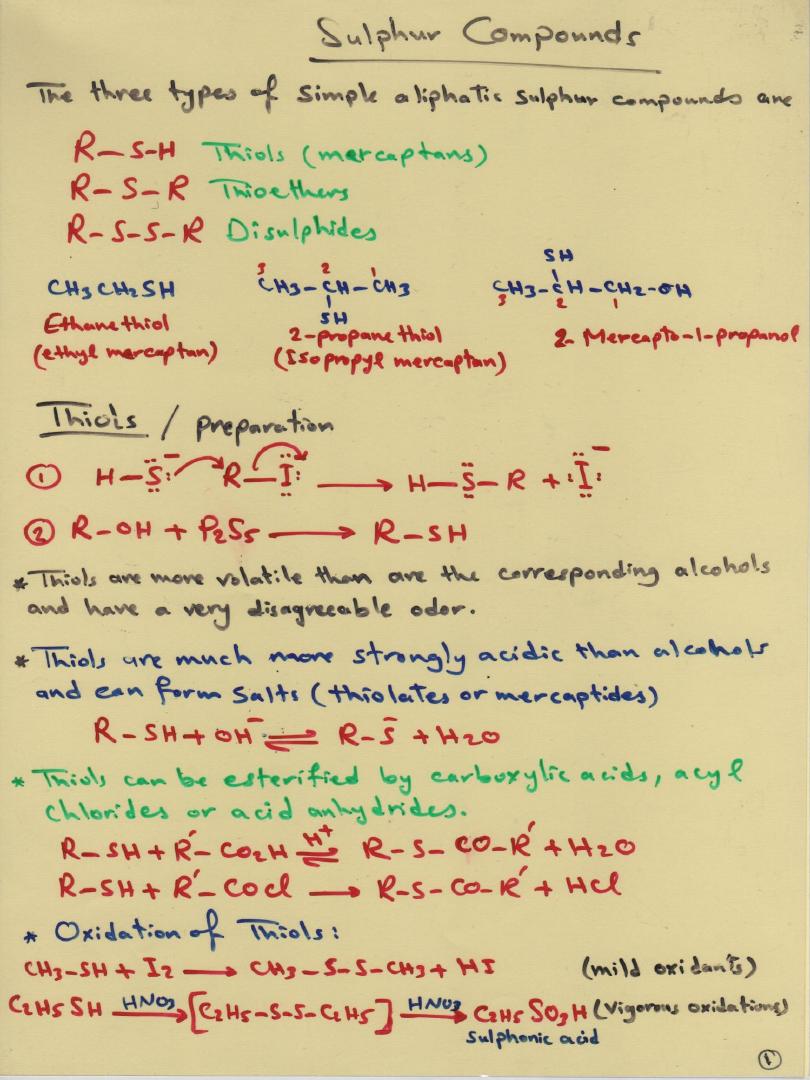 Sulphur Compounds
The three types of simple aliphatic sulphur compounds are
R-S-H Thiols (mercaptans)
R-S-R Thioethers
R-S-S-R Disulphides
SH
3 2 1
CH3CH2SH CH3-CH-CH3 CH3-CH-CH2-OH
SH 3 2 1
Ethanethiol 2-propanethiol 2-Mercapto-1-propanol
(ethyl mercaptan) (Isopropyl mercaptan)
Thiols / preparation
① H-S:⁻ R-I: → H-S-R + :I:⁻
② R-OH + P2S5 → R-SH
* Thiols are more volatile than are the corresponding alcohols
and have a very disagreeable odor.
* Thiols are much more strongly acidic than alcohols
and can form salts (thiolates or mercaptides)
R-SH + OH⁻ ⇌ R-S⁻ + H2O
* Thiols can be esterified by carboxylic acids, acyl
chlorides or acid anhydrides.
R-SH + R'-CO2H ⇌ H+ R-S-CO-R' + H2O
R-SH + R'-COCl → R-S-CO-R' + HCl
* Oxidation of Thiols:
CH3-SH + I2 → CH3-S-S-CH3 + HI (mild oxidants)
C2H5SH HNO3 → [C2H5-S-S-C2H5] HNO3 → C2H5SO3H (Vigorous oxidations)
sulphonic acid
①